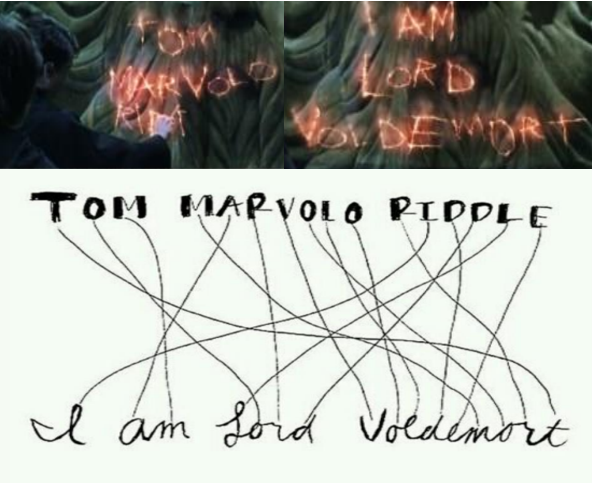 TOM
MARVOLO
I AM
LORD
VOLDEMORT
TOM MARVOLO RIDDLE
I am Lord Voldemort